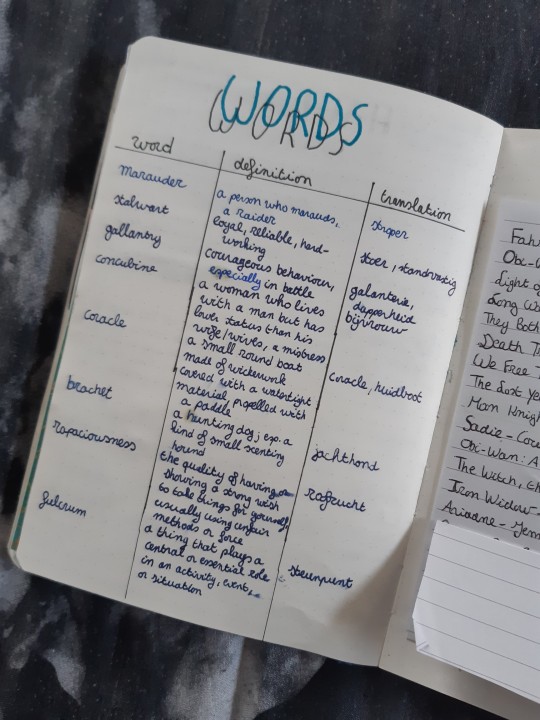 WORDS
word definition translation
marauder a person who marauds, stroper
a raider
stalwart loyal, reliable, hard- stoer, standvastig
working
gallantry courageous behaviour, galanterie,
especially in battle dapperheid
concubine a woman who lives bijvrouw
with a man but has
lower status than his
wife/wives, a mistress
coracle a small round boat coracle, huidboot
made of wickerwork
covered with a watertight
material, propelled with
a paddle
brachet a hunting dog; esp. a jachthond
kind of small scenting
hound
rapaciousness the quality of having or roofzucht
showing a strong wish
to take things for yourself,
usually using unfair
methods or force
fulcrum a thing that plays a steunpunt
central or essential role
in an activity, event,
or situation
Obi-W
Light of
Long Wa
They Both
Death Tr
We Free T
The Lost Ye
Man Knigh
Sadie - Cour
Obi-Wan: A
The Witch, th
Iron Widow -
Ariadne - Jenn